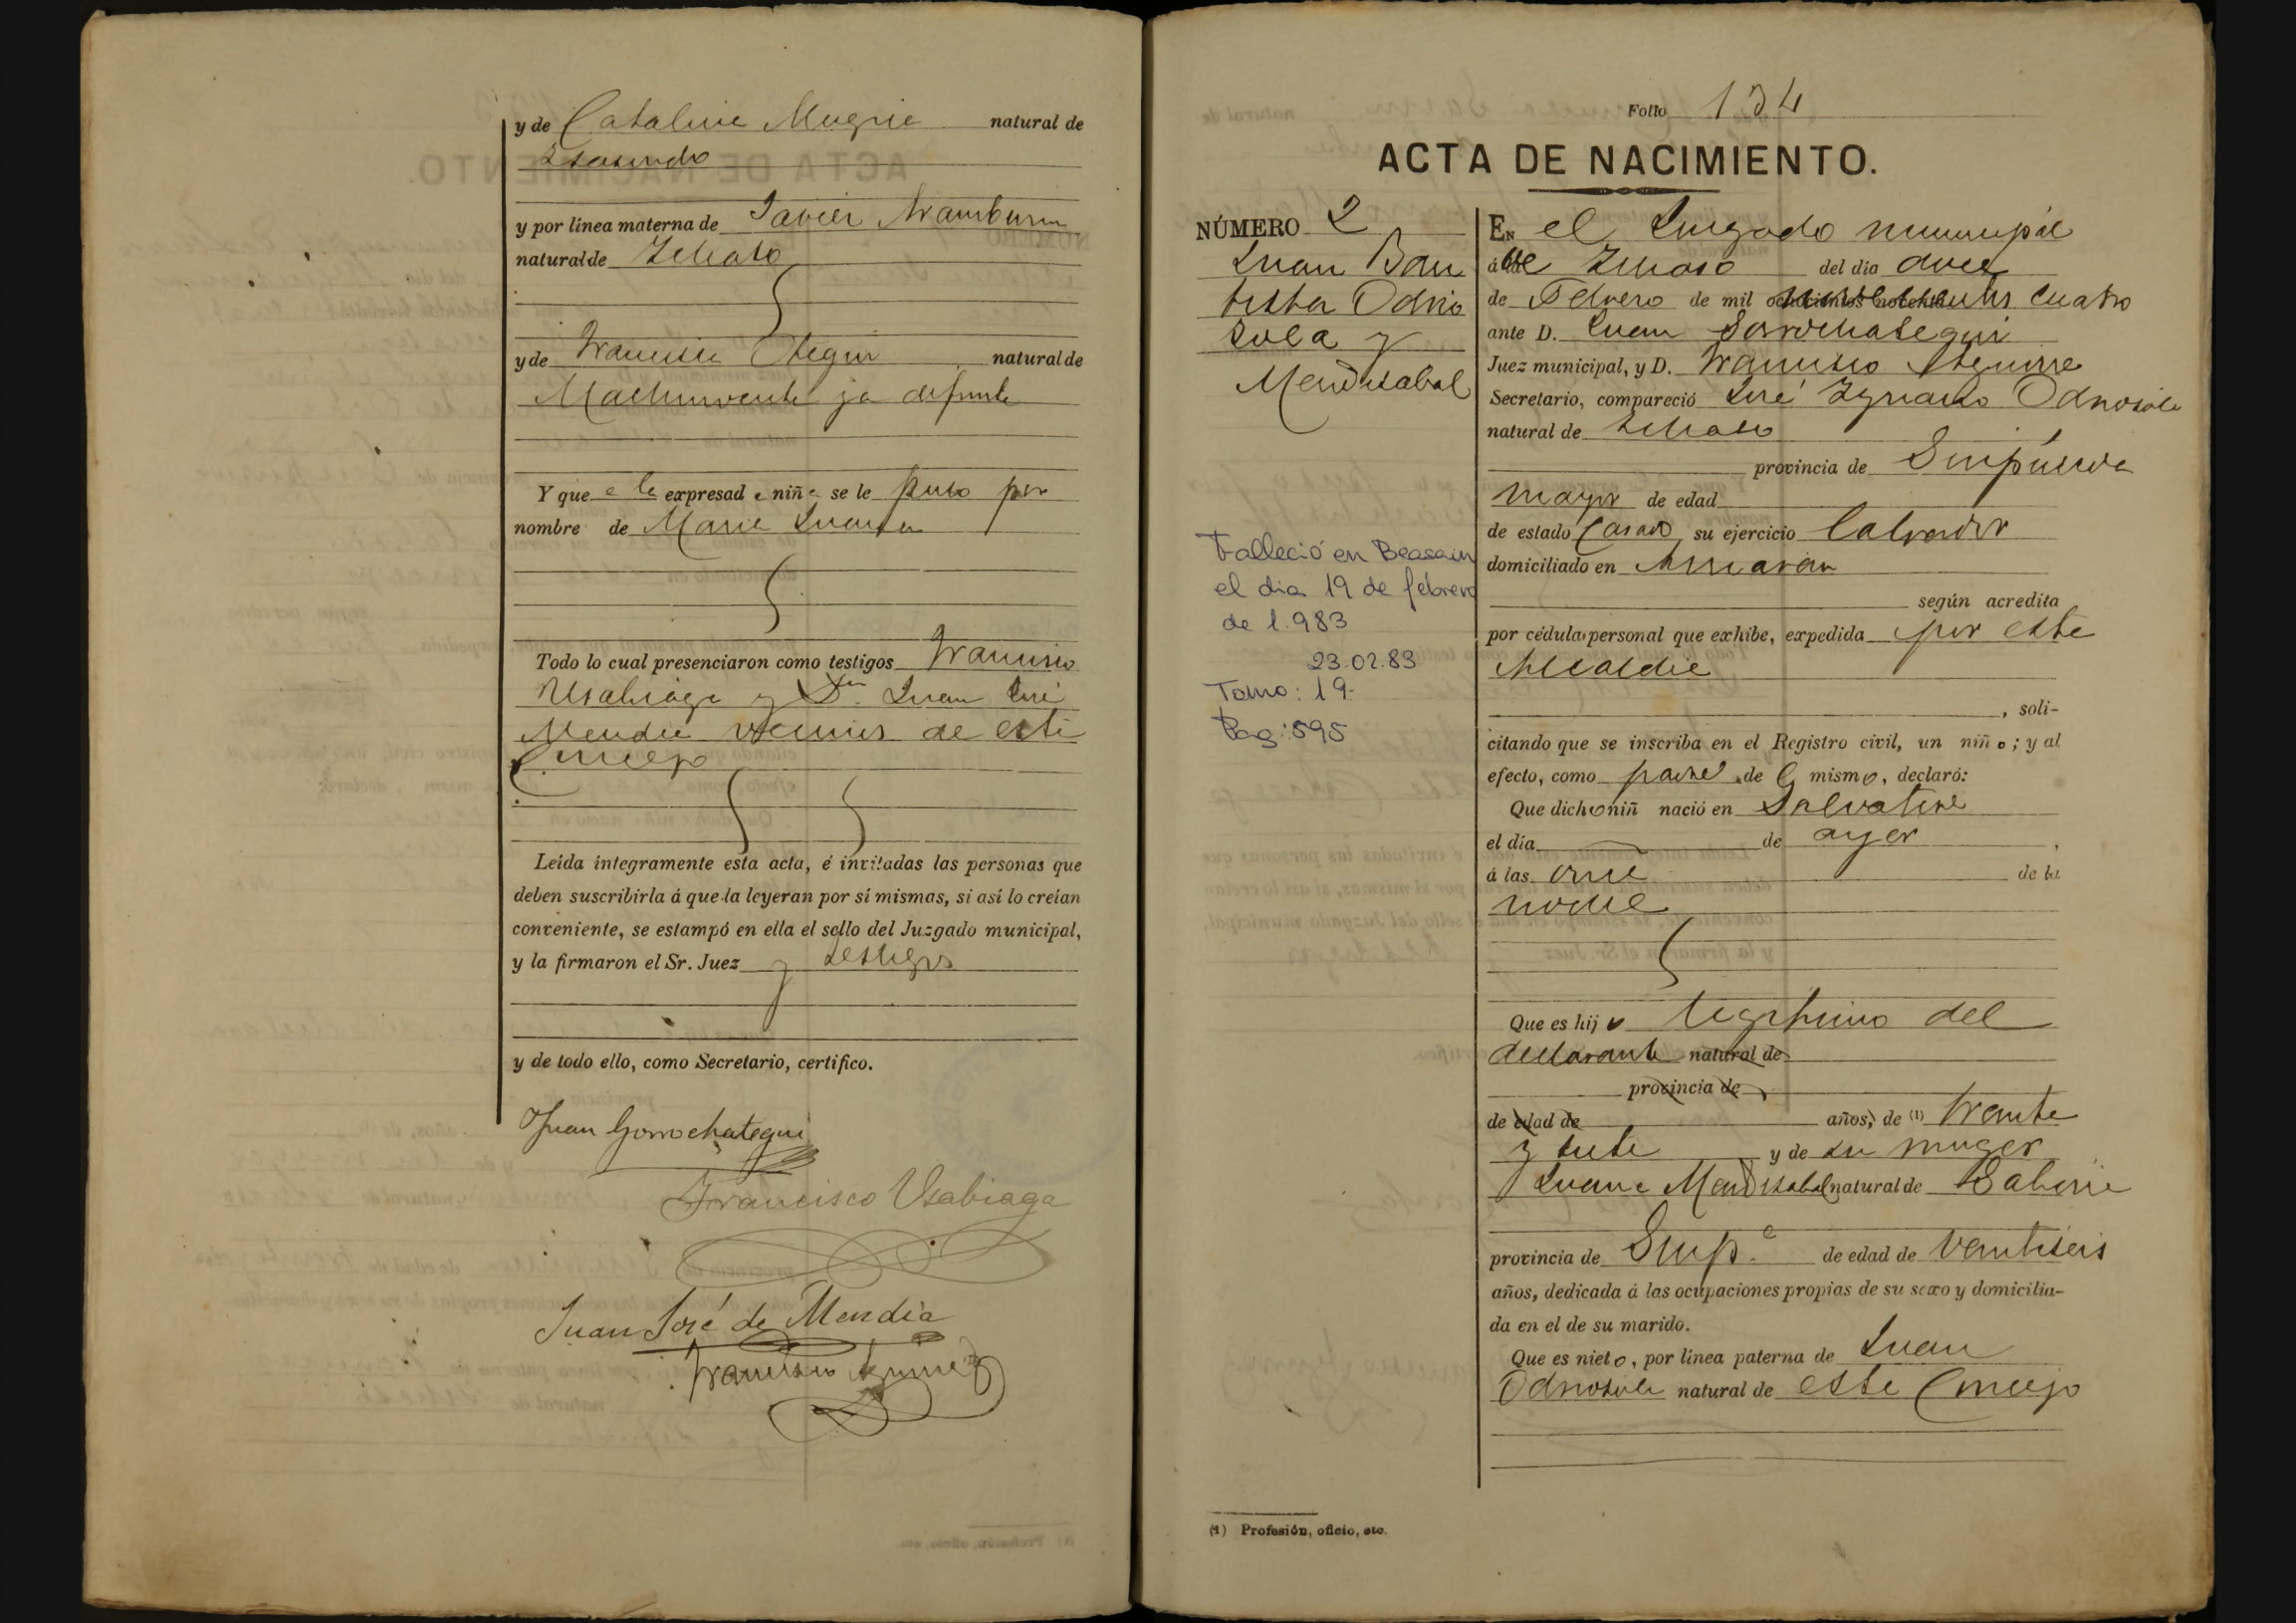 y de Catalina Mugica natural de
Isasondo
y por línea materna de Javier Aramburu
natural de Ichaso
y de Francisca Otegui natural de
Machinventa ya difunta
Y que a la expresada niña se le puso por
nombre de Maria Juana
Todo lo cual presenciaron como testigos Francisco
Usabiaga y Dn. Juan José
Mendia vecinos de este
Concejo
Leída íntegramente esta acta, é invitadas las personas que
deben suscribirla á que la leyeran por sí mismas, si así lo creían
conveniente, se estampó en ella el sello del Juzgado municipal,
y la firmaron el Sr. Juez y testigos
y de todo ello, como Secretario, certifico.
Juan Gorrochategui
Francisco Usabiaga
Juan José de Mendia
Francisco Aguirre
Folio 134
ACTA DE NACIMIENTO.
NÚMERO 2
Juan Bau
tista Odrio
zola y
Mendizabal
Falleció en Beasain
el dia 19 de febrero
de 1.983
23.02.83
Tomo: 19-
Pag: 595
En el Juzgado municipal
de Ichaso del día doce
de Febrero de mil novecientos cuatro
ante D. Juan Gorrochategui
Juez municipal, y D. Francisco Aguirre
Secretario, compareció José Ignacio Odriozola
natural de Ichaso
provincia de Guipúzcoa
mayor de edad
de estado Casado su ejercicio Labrador
domiciliado en Arriaran
según acredita
por cédula personal que exhibe, expedida por esta
Alcaldia
, soli-
citando que se inscriba en el Registro civil, un niño; y al
efecto, como padre de el mismo, declaró:
Que dicho niñ nació en Salvatore
el día de ayer
á las once de la
noche
Que es hijo legitimo del
declarante natural de
provincia de
de edad de años, de (1) treinta
y siete y de su muger
Juana Mendizabal natural de Gabiria
provincia de Guipa. de edad de veintiseis
años, dedicada á las ocupaciones propias de su sexo y domicilia-
da en el de su marido.
Que es nieto, por línea paterna de Juan
Odriozola natural de este Concejo
(1) Profesión, oficio, etc.